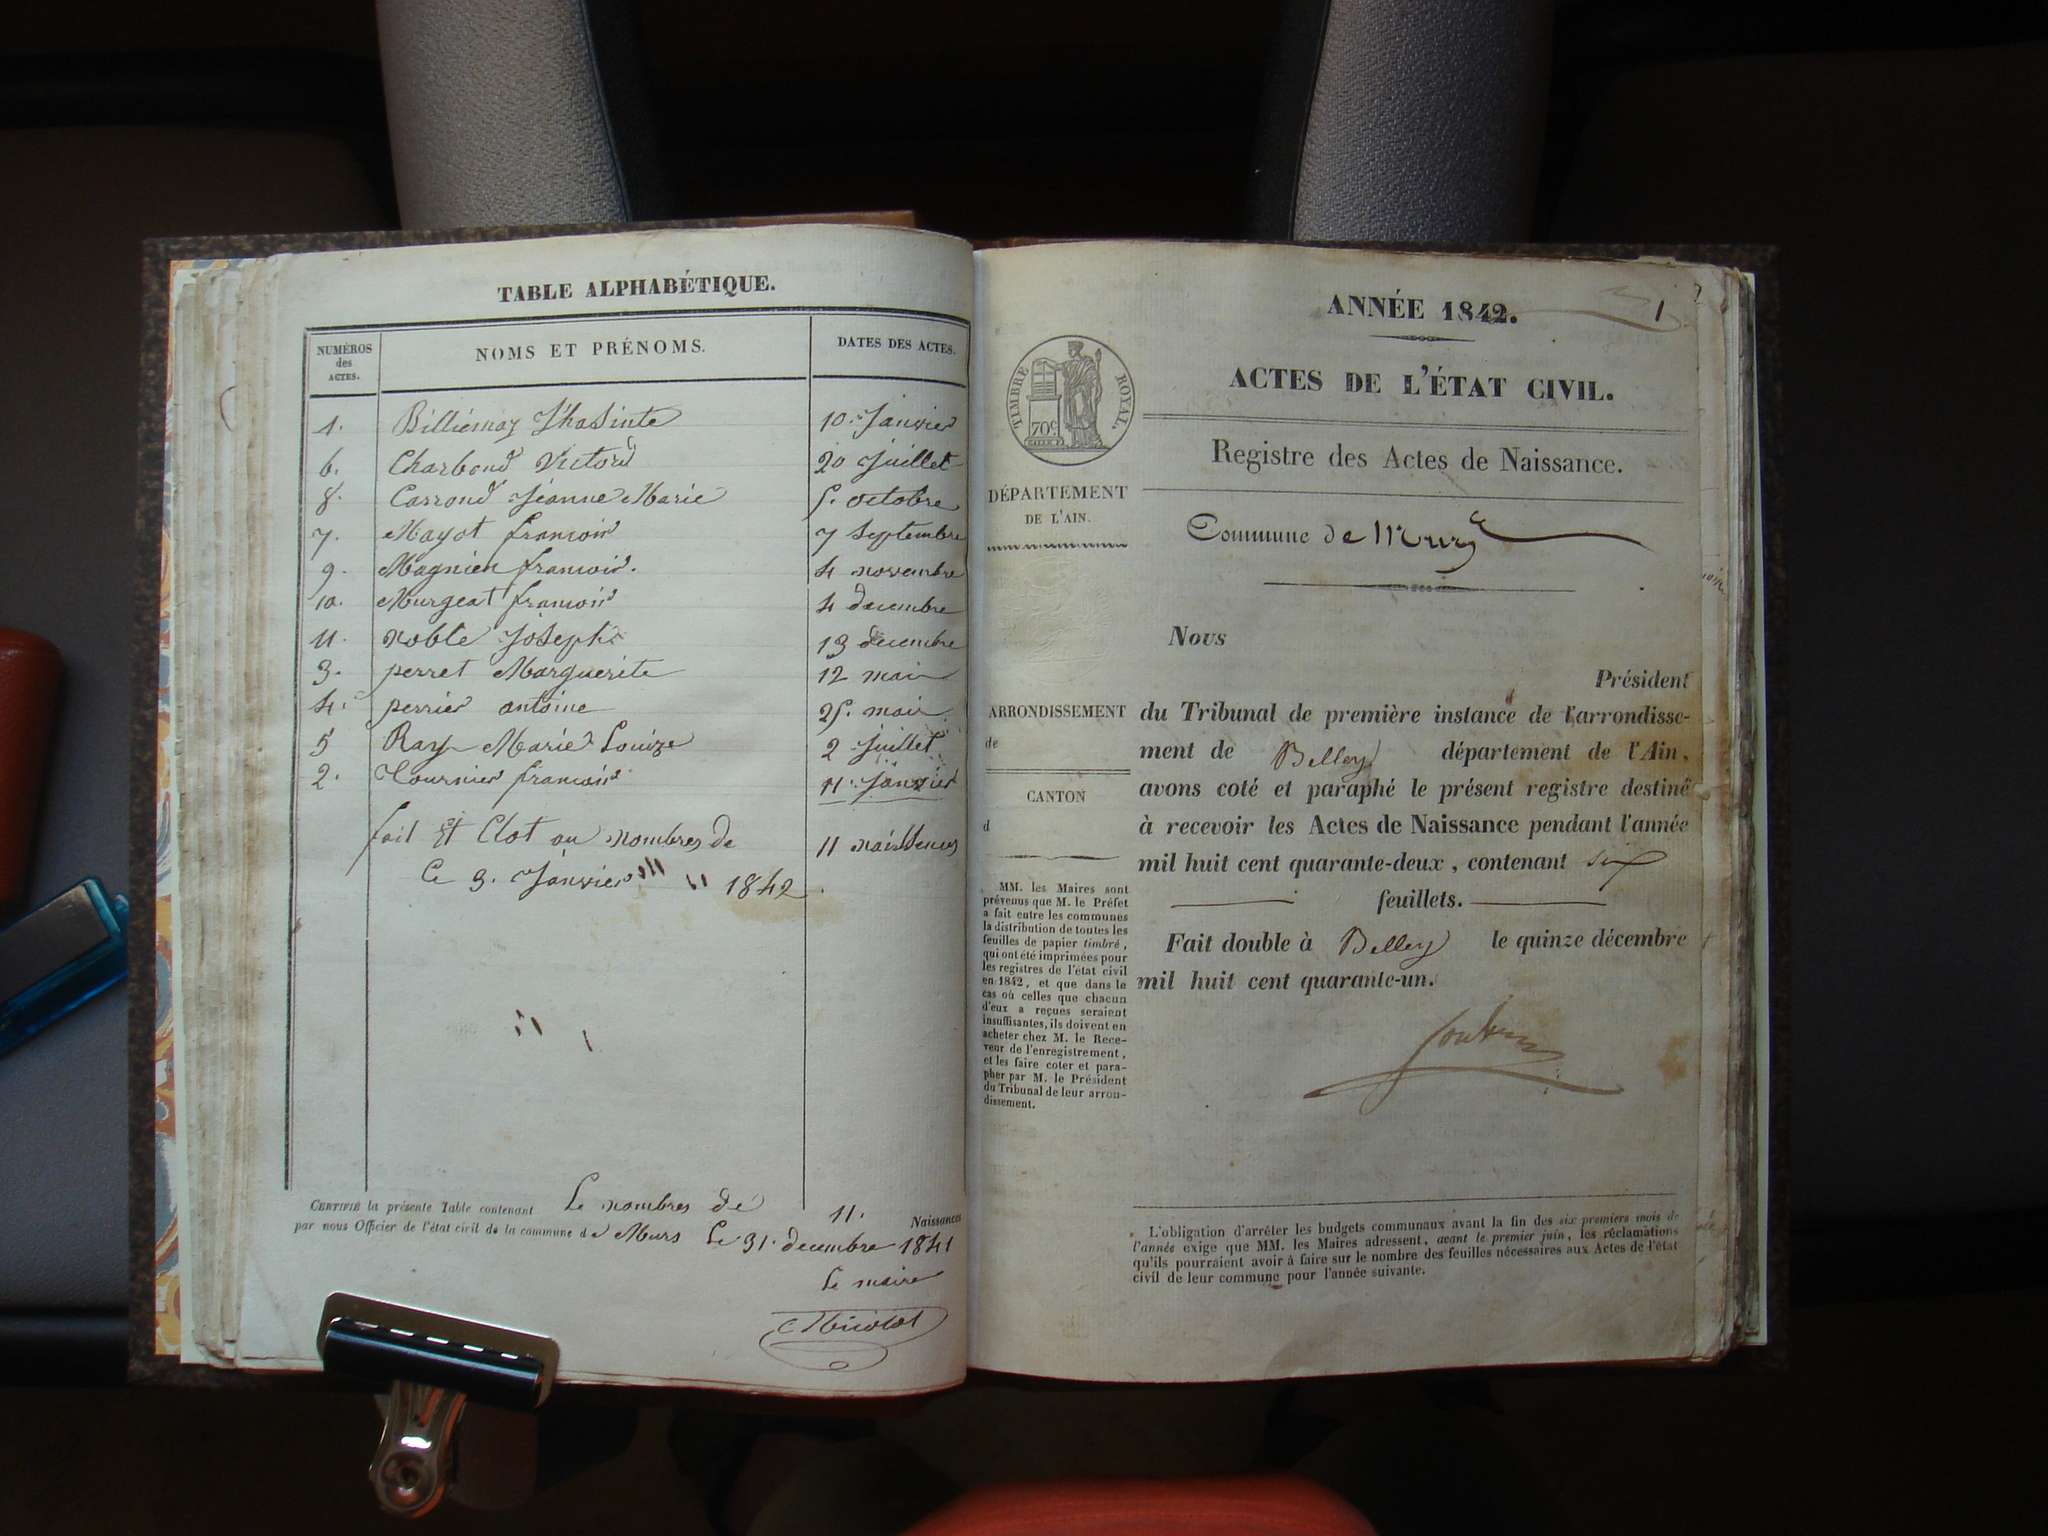 TABLE ALPHABÉTIQUE.
NUMÉROS des ACTES. NOMS ET PRÉNOMS. DATES DES ACTES.
1. 10. Janvier
6. Charbond Victord 20 Juillet
8. Carrond Jéanne Marie 5. octobre
7. Mayot francois 7 Septembre
9. Magnien francois. 4 novembre
10. Murgeat francois 4 decembre
11. noble Joseph 13 decembre
3. perret Marguerite 12 mai
4. perrier antoine 25. mai
5 Ray Marie Louize 2 Juillet
2. Tournier francois 11. Janvier
fait Et Clot au nombres de 11 naissences
Ce 3. Janvier 1842.
CERTIFIÉ la présente Table contenant Le nombres de 11. Naissances
par nous Officier de l'état civil de la commune de Murs Le 31. decembre 1841
Le maire
ANNÉE 1842. 1
ACTES DE L'ÉTAT CIVIL.
TIMBRE ROYAL.
70c
Registre des Actes de Naissance.
DÉPARTEMENT
DE L'AIN.
Commune de Murs
Nous
Président
ARRONDISSEMENT
de
CANTON
d
du Tribunal de première instance de l'arrondisse-
ment de Belley département de l'Ain,
avons coté et paraphé le présent registre destiné
à recevoir les Actes de Naissance pendant l'année
mil huit cent quarante-deux, contenant six
feuillets.
Fait double à Belley le quinze décembre
mil huit cent quarante-un.
MM. les Maires sont
prévenus que M. le Préfet
a fait entre les communes
la distribution de toutes les
feuilles de papier timbré,
qui ont été imprimées pour
les registres de l'état civil
en 1842, et que dans le
cas où celles que chacun
d'eux a reçues seraient
insuffisantes, ils doivent en
acheter chez M. le Rece-
veur de l'enregistrement,
et les faire coter et para-
pher par M. le Président
du Tribunal de leur arron-
dissement.
L'obligation d'arrêter les budgets communaux avant la fin des six premiers mois de
l'année exige que MM. les Maires adressent, avant le premier juin, les réclamations
qu'ils pourraient avoir à faire sur le nombre des feuilles nécessaires aux Actes de l'état
civil de leur commune pour l'année suivante.